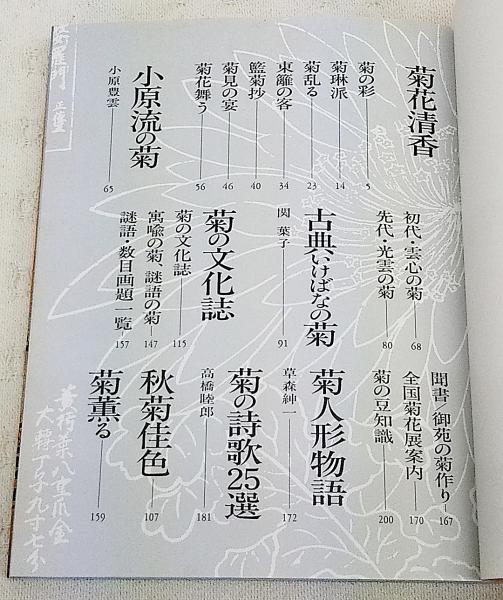 菊花清香
菊の彩 5
菊琳派 14
菊乱る 23
東籬の客 34
籃菊抄 40
菊見の宴 46
菊花舞う 56
小原流の菊
小原豊雲 65
初代・雲心の菊 68
先代・光雲の菊 80
古典いけばなの菊
関 葉子 91
菊の文化誌
菊の文化誌 115
寓喩の菊、謎語の菊 147
謎語・数目画題一覧 157
聞書・御苑の菊作り 167
全国菊花展案内 170
菊の豆知識 200
菊人形物語
草森紳一 172
菊の詩歌25選
高橋睦郎 181
秋菊佳色 107
菊薫る 159